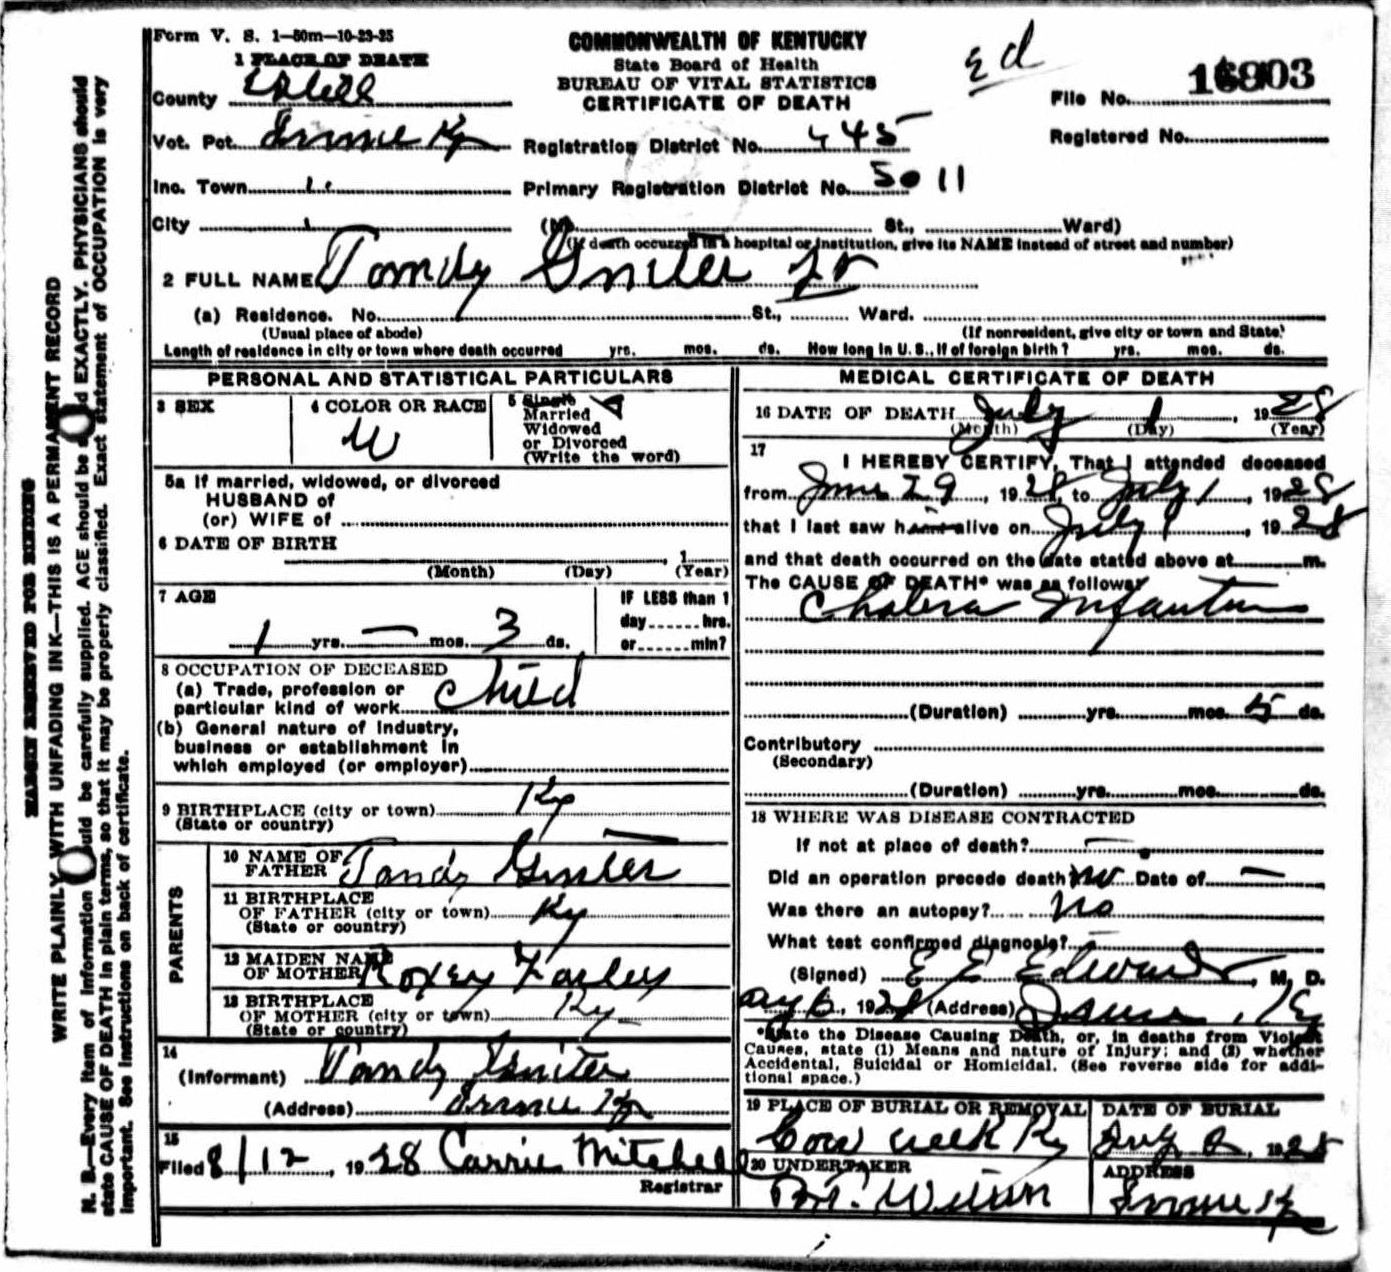 Form V. S. 1—50m—10-23-25
COMMONWEALTH OF KENTUCKY
State Board of Health
BUREAU OF VITAL STATISTICS
CERTIFICATE OF DEATH
Ed
1 PLACE OF DEATH
County Estill
File No. 16903
Vot. Pct. Irvine Ky
Registration District No. 445
Registered No.
Inc. Town
Primary Registration District No. 5011
City (No. St., Ward)
(If death occurred in a hospital or institution, give its NAME instead of street and number)
2 FULL NAME Tandy Ginter Jr
(a) Residence. No. St., Ward.
(Usual place of abode) (If nonresident, give city or town and State)
Length of residence in city or town where death occurred yrs. mos. ds. How long in U. S., if of foreign birth? yrs. mos. ds.
PERSONAL AND STATISTICAL PARTICULARS
3 SEX
4 COLOR OR RACE W
5 Single
Married
Widowed
or Divorced
(Write the word)
5a If married, widowed, or divorced
HUSBAND of
(or) WIFE of
6 DATE OF BIRTH
, 1
(Month) (Day) (Year)
7 AGE
1 yrs. — mos. 3 ds.
IF LESS than 1
day hrs.
or min?
8 OCCUPATION OF DECEASED
(a) Trade, profession or
particular kind of work Child
(b) General nature of industry,
business or establishment in
which employed (or employer)
9 BIRTHPLACE (city or town) Ky
(State or country)
PARENTS
10 NAME OF
FATHER Tandy Ginter
11 BIRTHPLACE
OF FATHER (city or town) Ky
(State or country)
12 MAIDEN NAME
OF MOTHER Roxey Farley
13 BIRTHPLACE
OF MOTHER (city or town) Ky
(State or country)
14
(Informant) Tandy Ginter
(Address) Irvine Ky
15
Filed 8/12, 1928 Carrie Mitchell
Registrar
MEDICAL CERTIFICATE OF DEATH
16 DATE OF DEATH July 1 1928
(Month) (Day) (Year)
17
I HEREBY CERTIFY, That I attended deceased
from June 29, 1928, to July 1, 1928
that I last saw him alive on July 1, 1928
and that death occurred on the date stated above at m.
The CAUSE OF DEATH* was as follows
Cholera Infantum
(Duration) yrs. mos. 5 ds.
Contributory
(Secondary)
(Duration) yrs. mos. ds.
18 WHERE WAS DISEASE CONTRACTED
If not at place of death? —
Did an operation precede death? No Date of —
Was there an autopsy? No
What test confirmed diagnosis? —
(Signed) E E Edwards, M. D.
Aug 6, 1928 (Address) Irvine, Ky
*State the Disease Causing Death, or, in deaths from Violent
Causes, state (1) Means and nature of Injury; and (2) whether
Accidental, Suicidal or Homicidal. (See reverse side for addi-
tional space.)
19 PLACE OF BURIAL OR REMOVAL
Cow Creek Ky
DATE OF BURIAL
2, 1928
20 UNDERTAKER
Wilson
ADDRESS
Irvine Ky
MARGIN RESERVED FOR BINDING
WRITE PLAINLY WITH UNFADING INK—THIS IS A PERMANENT RECORD
N. B.—Every item of information should be carefully supplied. AGE should be stated EXACTLY. PHYSICIANS should
state CAUSE OF DEATH in plain terms, so that it may be properly classified. Exact statement of OCCUPATION is very
important. See instructions on back of certificate.